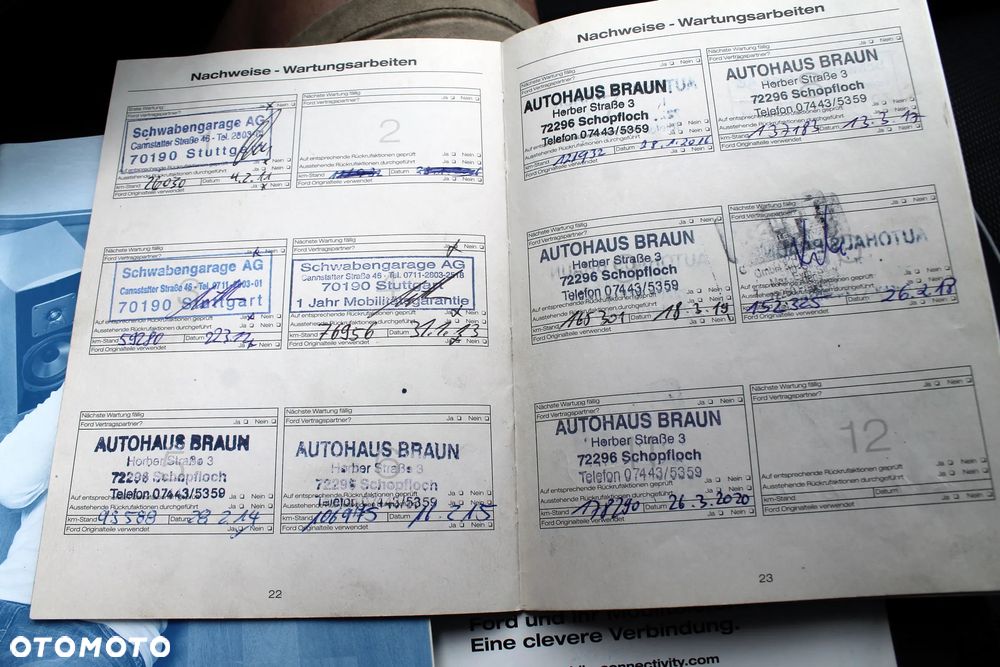 Nachweise - Wartungsarbeiten
Erste Wartung
Ford Vertragspartner?
Ja Nein
Schwabengarage AG
Cannstatter Straße 46 - Tel.
70190 Stuttgart
Ausstehende Rückrufaktionen durchgeführt
Ja Nein
km-Stand 26030 Datum 4.2.11
Ford Originalteile verwendet
Ja Nein
Nächste Wartung fällig
Ford Vertragspartner?
Ja Nein
2
Auf entsprechende Rückrufaktionen geprüft
Ja Nein
Ausstehende Rückrufaktionen durchgeführt
Ja Nein
km-Stand Datum
Ford Originalteile verwendet
Ja Nein
Nächste Wartung fällig
Ford Vertragspartner?
Ja Nein
Schwabengarage AG
Cannstatter Straße 46 - Tel. 0711-2803-01
70190 Stuttgart
Ausstehende Rückrufaktionen durchgeführt
Ja Nein
km-Stand 59280 Datum
Ford Originalteile verwendet
Ja Nein
Nächste Wartung fällig
Ford Vertragspartner?
Ja Nein
Schwabengarage AG
Cannstatter Straße 46 - Tel. 0711-2803-2518
70190 Stuttgart
1 Jahr Mobilitätsgarantie
Ausstehende Rückrufaktionen durchgeführt
Ja Nein
km-Stand 76956 Datum 31.1.13
Ford Originalteile verwendet
Ja Nein
Nächste Wartung fällig
Ford Vertragspartner?
Ja Nein
AUTOHAUS BRAUN
Horber Straße 3
72296 Schopfloch
Telefon 07443/5359
Auf entsprechende Rückrufaktionen geprüft
Ausstehende Rückrufaktionen durchgeführt
Ja Nein
km-Stand 93588 Datum 28.2.14
Ford Originalteile verwendet
Ja Nein
Nächste Wartung fällig
Ford Vertragspartner?
Ja Nein
AUTOHAUS BRAUN
Horber Straße 3
72296 Schopfloch
Telefon 07443/5359
Ausstehende Rückrufaktionen durchgeführt
Ja Nein
km-Stand 106975 Datum 16.2.15
Ford Originalteile verwendet
Ja Nein
22
Nachweise - Wartungsarbeiten
Nächste Wartung fällig
Ford Vertragspartner?
Ja Nein
AUTOHAUS BRAUN
Horber Straße 3
72296 Schopfloch
Telefon 07443/5359
Ausstehende Rückrufaktionen durchgeführt
Ja Nein
km-Stand 121932 Datum 28.1.2016
Ford Originalteile verwendet
Ja Nein
Nächste Wartung fällig
Ford Vertragspartner?
Ja Nein
AUTOHAUS BRAUN
Horber Straße 3
72296 Schopfloch
Telefon 07443/5359
Ausstehende Rückrufaktionen durchgeführt
Ja Nein
km-Stand 137183 Datum 13.3.17
Ford Originalteile verwendet
Ja Nein
Nächste Wartung fällig
Ford Vertragspartner?
Ja Nein
AUTOHAUS BRAUN
Horber Straße 3
72296 Schopfloch
Telefon 07443/5359
Ausstehende Rückrufaktionen durchgeführt
Ja Nein
km-Stand 168301 Datum 18.3.19
Ford Originalteile verwendet
Ja Nein
Nächste Wartung fällig
Ford Vertragspartner?
Ja Nein
AUTOHAUS BRAUN
Ja Nein
km-Stand 152.325 Datum 26.2.18
Ford Originalteile verwendet
Ja Nein
Nächste Wartung fällig
Ford Vertragspartner?
Ja Nein
AUTOHAUS BRAUN
Horber Straße 3
72296 Schopfloch
Telefon 07443/5359
Auf entsprechende Rückrufaktionen geprüft
Ausstehende Rückrufaktionen durchgeführt
Ja Nein
km-Stand 178290 Datum 26.3.2020
Ford Originalteile verwendet
Ja Nein
Nächste Wartung fällig
Ford Vertragspartner?
Ja Nein
12
Auf entsprechende Rückrufaktionen geprüft
Ja Nein
Ausstehende Rückrufaktionen durchgeführt
Ja Nein
km-Stand Datum
Ford Originalteile verwendet
Ja Nein
23
Ford und Ihr
Eine clevere Verbindung.
connectivity.com
OTOMOTO